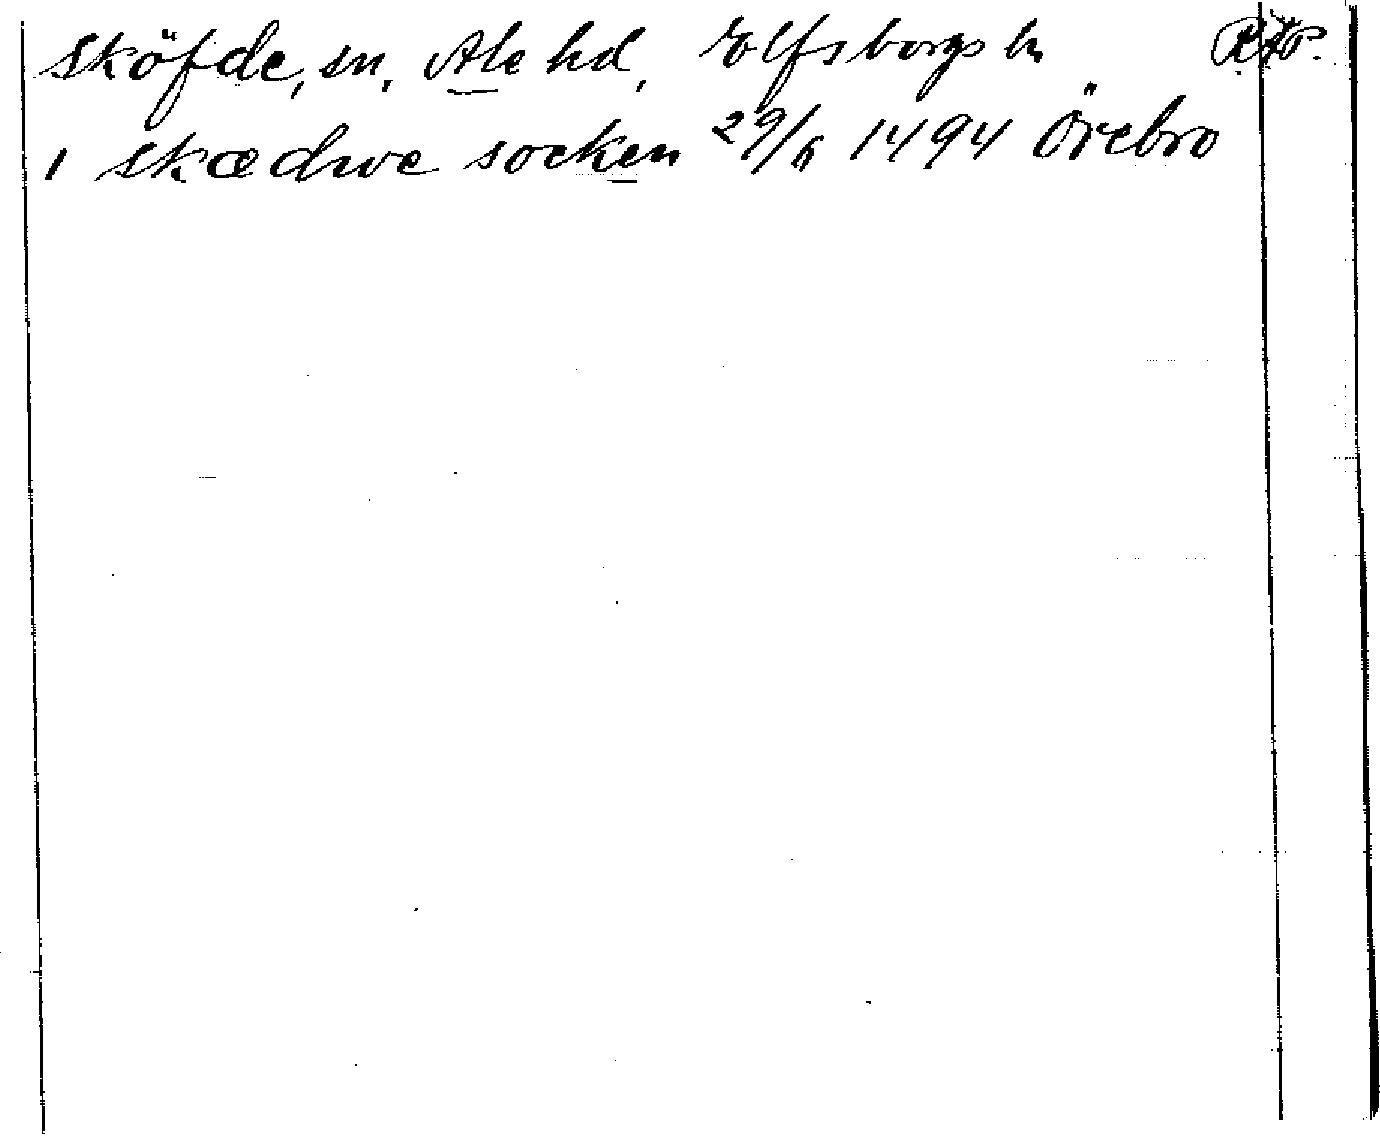 Sköfde, sn, Ale hd, Elfsborgs ln RAP.
i skædwe socken 29/6 1494 Örebro